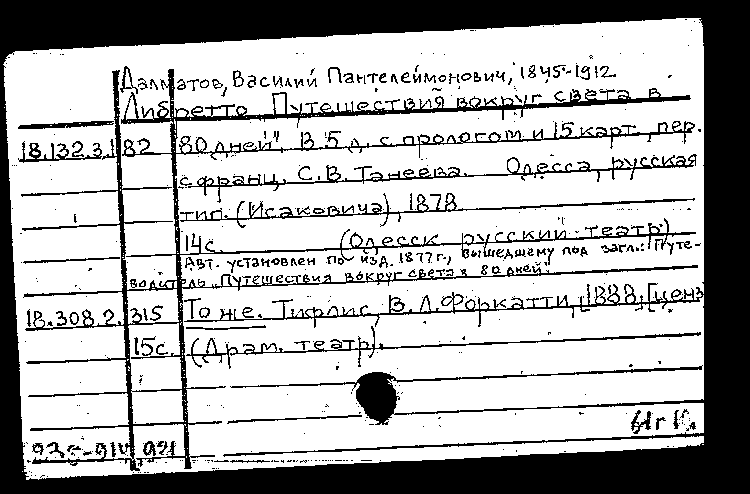 Далматов, Василий Пантелеймонович, 1845-1912
Либретто „Путешествия вокруг света в
18.132.3.182 80 дней". В 5 д. с прологом и 15 карт., пер.
с франц. С.В. Танеева. Одесса, русская
тип. (Исаковича), 1878
14 с. (Одесск. русский театр)
Авт. установлен по изд. 1877 г., вышедшему под загл.: Путе-
водитель „Путешествия вокруг света в 80 дней".
18.308.2.315 То же. Тифлис, В.Л. Форкатти, 1888. [ценз
15 с. (Драм. театр).